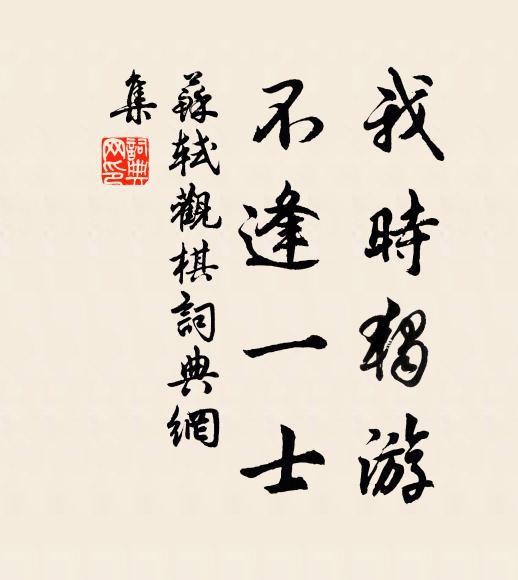 我時獨游
不逢一士
蘇軾觀棋詞典網
集
詞典
网印